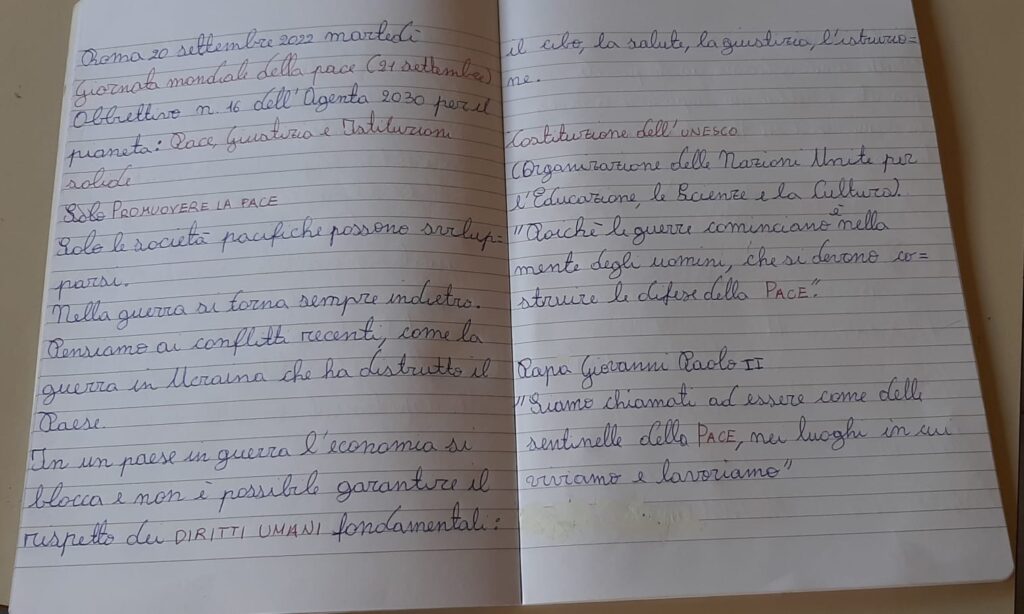 Roma 20 settembre 2022 martedì
Giornata mondiale della pace (21 settembre)
Obbiettivo n. 16 dell'Agenta 2030 per il
pianeta: Pace, Giustizia e Istituzioni
solide
Solo PROMUOVERE LA PACE
Solo le società pacifiche possono svilup=
parsi.
Nella guerra si torna sempre indietro.
Pensiamo ai conflitti recenti, come la
guerra in Ucraina che ha distrutto il
Paese.
In un paese in guerra l'economia si
blocca e non è possibile garantire il
rispetto dei DIRITTI UMANI fondamentali:
il cibo, la salute, la giustizia, l'istruzio=
ne.
Costituzione dell'UNESCO
(Organizzazione delle Nazioni Unite per
l'Educazione, le Scienze e la Cultura).
"Poichè le guerre cominciano nella
è
mente degli uomini, che si devono co=
struire le difese della PACE."
Papa Giovanni Paolo II
"Siamo chiamati ad essere come delle
sentinelle della PACE, nei luoghi in cui
viviamo e lavoriamo"